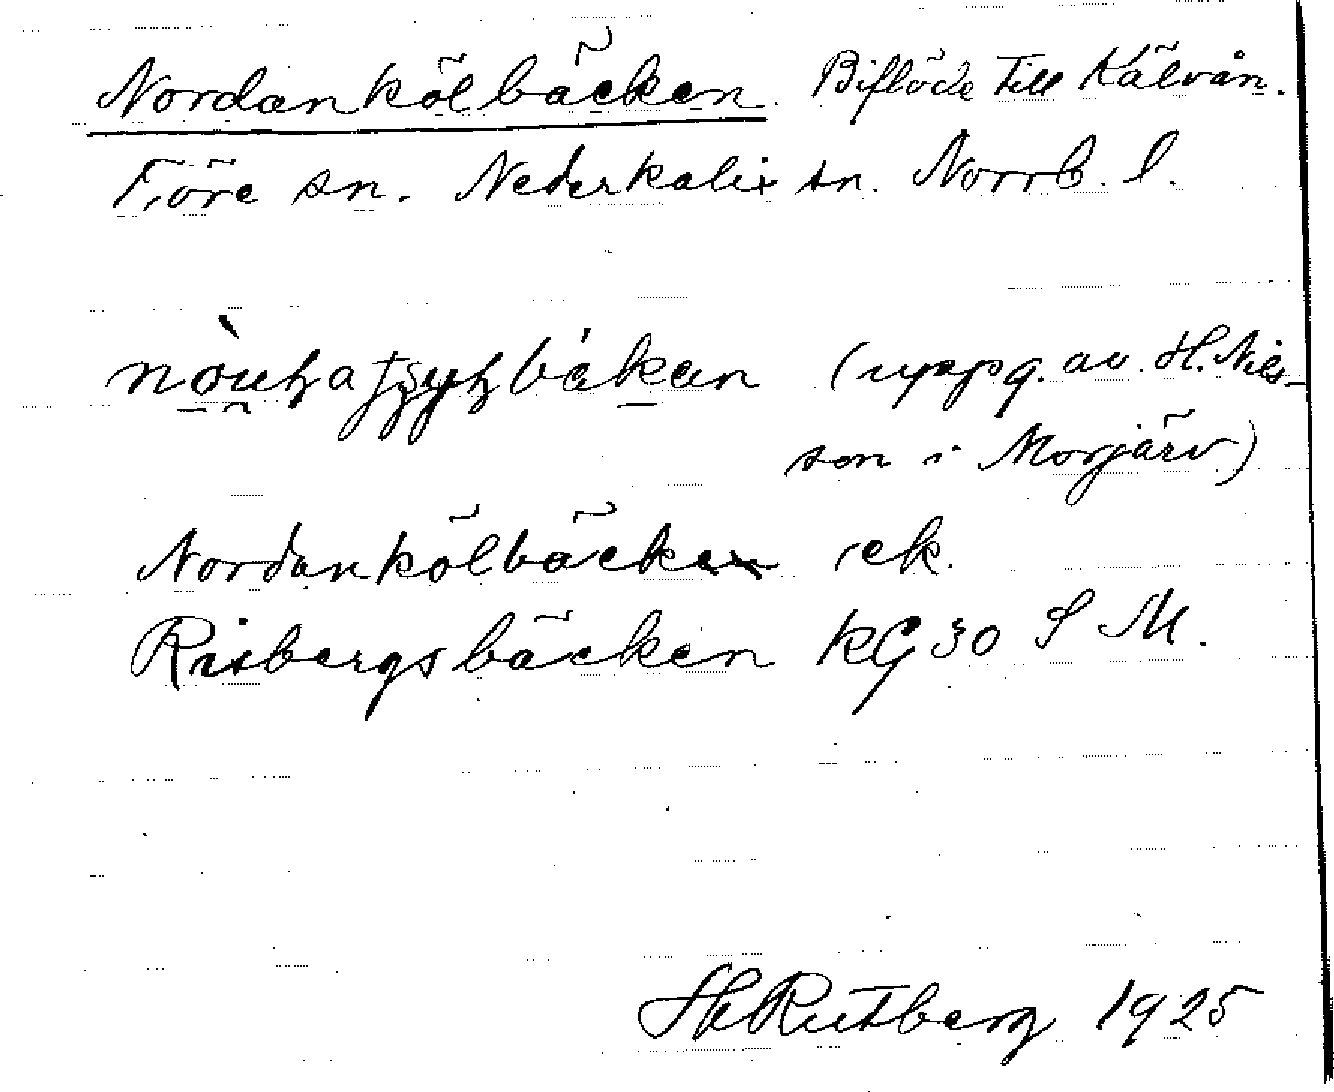 Nordankölbäcken. Biflöde till Kälvån.
Töre sn. Nederkalix sn. Norrb. l.
(uppg. av H. Nils-
son i Morjärv)
Nordankölbäcken rek.
Risbergsbäcken KG 30 S M.
H Rutberg 1925